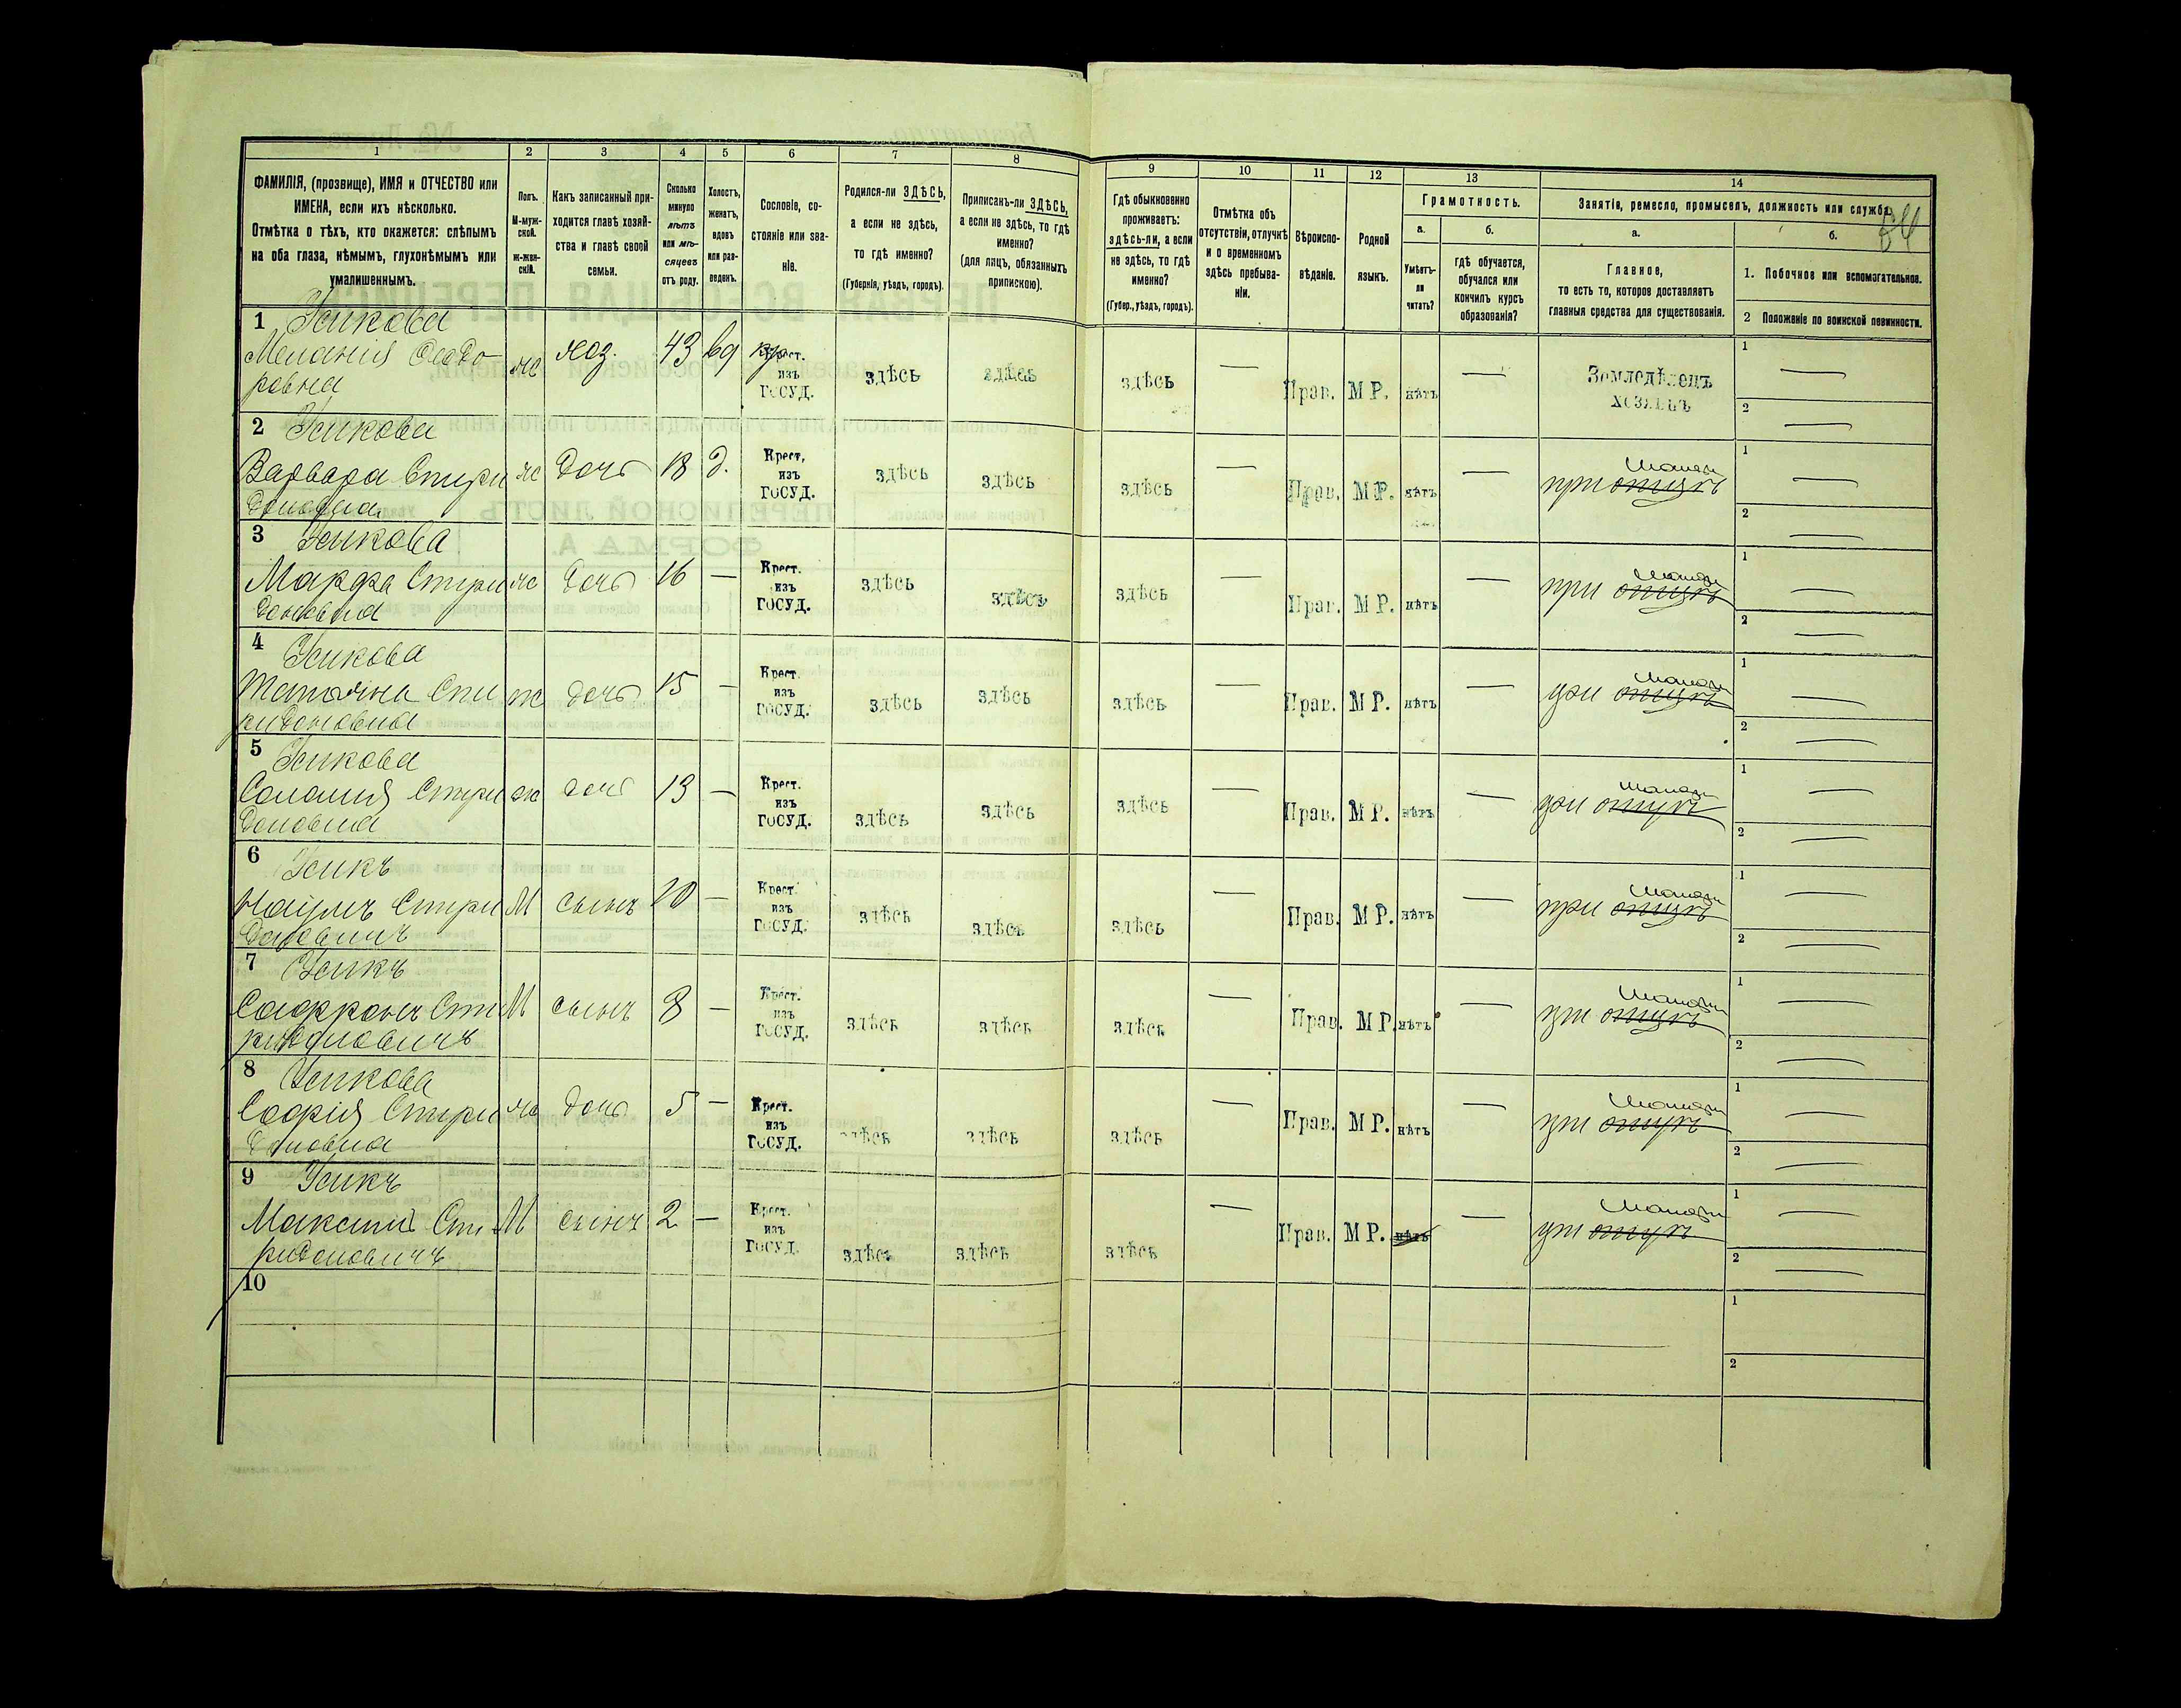 84
1 2 3 4 5 6 7 8 9 10 11 12 13 14
ФАМИЛІЯ, (прозвище), ИМЯ и ОТЧЕСТВО или
ИМЕНА, если ихъ нѣсколько.
Отмѣтка о тѣхъ, кто окажется: слѣпымъ
на оба глаза, нѣмымъ, глухонѣмымъ или
умалишеннымъ.
Полъ.
М-муж-
ской.
Ж-жен-
скій.
Какъ записанный при-
ходится главѣ хозяй-
ства и главѣ своей
семьи.
Сколько
минуло
лѣтъ
или мѣ-
сяцевъ
отъ роду.
Холостъ,
женатъ,
вдовъ
или раз-
веденъ.
Сословіе, со-
стояніе или зва-
ніе.
Родился-ли ЗДѢСЬ,
а если не здѣсь,
то гдѣ именно?
(Губернія, уѣздъ, городъ).
Приписанъ-ли ЗДѢСЬ,
а если не здѣсь, то гдѣ
именно?
(для лицъ, обязанныхъ
припискою).
Гдѣ обыкновенно
проживаетъ:
здѣсь-ли, а если
не здѣсь, то гдѣ
именно?
(Губер., уѣздъ, городъ).
Отмѣтка объ
отсутствіи, отлучкѣ
и о временномъ
здѣсь пребыва-
ніи.
Вѣроиспо-
вѣданіе.
Родной
языкъ.
Грамотность.
а.
Умѣетъ-
ли
читать?
б.
гдѣ обучается,
обучался или
кончилъ курсъ
образованія?
Занятіе, ремесло, промыселъ, должность или служба.
а.
Главное,
то есть то, которое доставляетъ
главныя средства для существованія.
б.
1. Побочное или вспомогательное.
2 Положеніе по воинской повинности.
1 Усикова
Меланія Ѳедо-
ровна
ж хоз. 43 вд кр Крест.
изъ
ГОСУД.
здѣсь здѣсь здѣсь — Прав. МР. нѣтъ — Земледѣлецъ
хозяинъ
1 —
2 —
2 Усикова
Варвара Спири
доновна
ж дочь 18 д. Крест.
изъ
ГОСУД.
здѣсь здѣсь здѣсь — Прав. МР. нѣтъ — при отцѣ матери
1 —
2 —
3 Усикова
Марфа Спири
доновна
ж дочь 16 — Крест.
изъ
ГОСУД.
здѣсь здѣсь здѣсь — Прав. МР. нѣтъ — при отцѣ матери
1 —
2 —
4 Усикова
Татьяна Спи
ридоновна
ж дочь 15 — Крест.
изъ
ГОСУД.
здѣсь здѣсь здѣсь — Прав. МР. нѣтъ — при отцѣ матери
1 —
2 —
5 Усикова
Соломія Спири
доновна
ж дочь 13 — Крест.
изъ
ГОСУД.
здѣсь здѣсь здѣсь — Прав. МР. нѣтъ — при отцѣ матери
1 —
2 —
6 Усикъ
Наумъ Спири
доновичъ
М сынъ 10 — Крест.
изъ
ГОСУД.
здѣсь здѣсь здѣсь — Прав. МР. нѣтъ — при отцѣ матери
1 —
2 —
7 Усикъ
Софронъ Спи
ридоновичъ
М сынъ 8 — Крест.
изъ
ГОСУД.
здѣсь здѣсь здѣсь — Прав. МР. нѣтъ — при отцѣ матери
1 —
2 —
8 Усикова
Софія Спири
доновна
ж дочь 5 — Крест.
изъ
ГОСУД.
здѣсь здѣсь здѣсь — Прав. МР. нѣтъ — при отцѣ матери
1 —
2 —
9 Усикъ
Максимъ Спи
ридоновичъ
М сынъ 2 — Крест.
изъ
ГОСУД.
здѣсь здѣсь здѣсь — Прав. МР. нѣтъ — при отцѣ матери
1 —
2 —
10
1
2